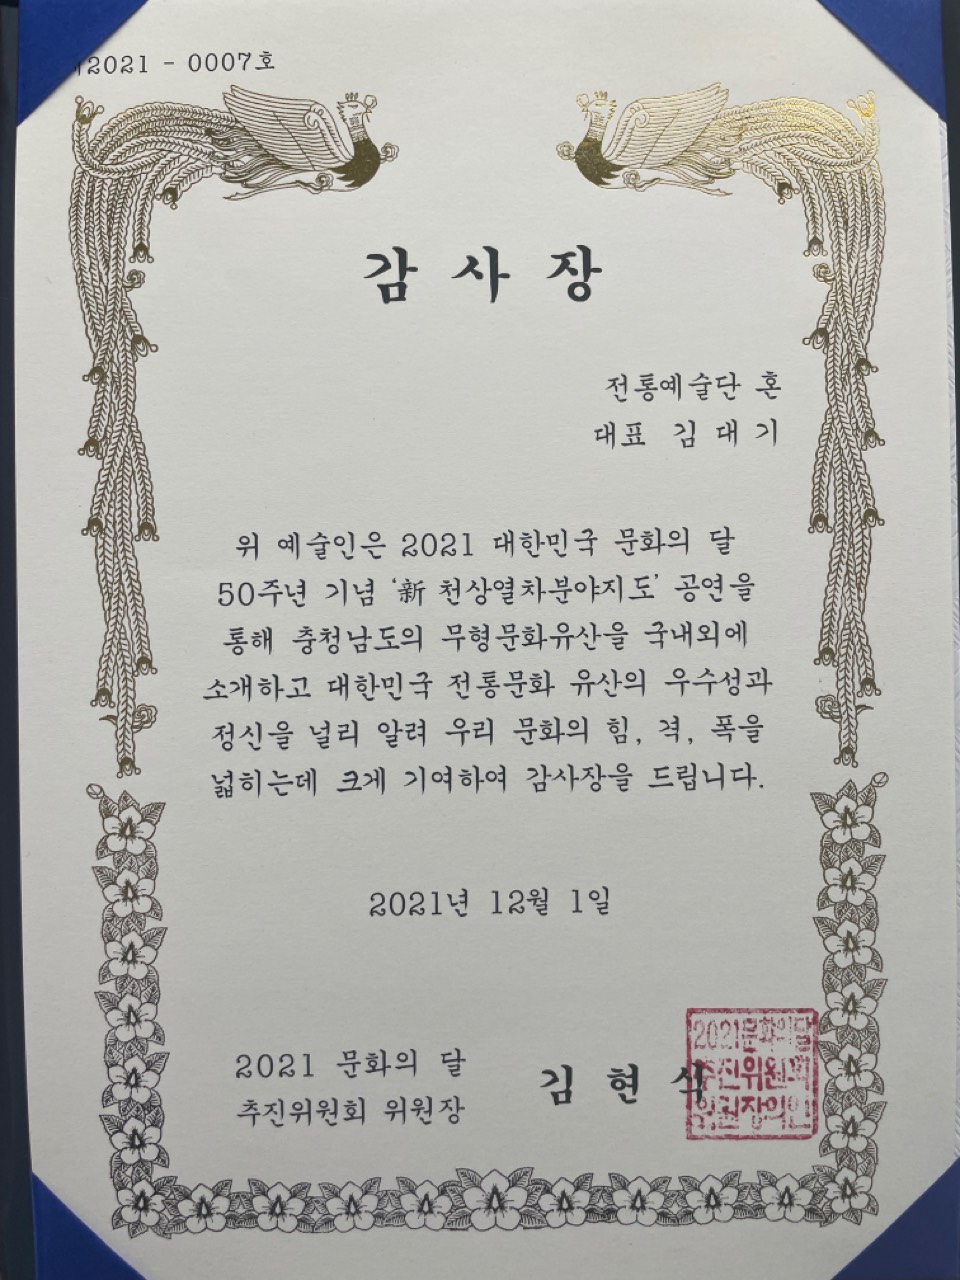 2021 - 0007호
감 사 장
전통예술단 혼
대표 김 대 기
위 예술인은 2021 대한민국 문화의 달
50주년 기념 ‘新 천상열차분야지도’ 공연을
통해 충청남도의 무형문화유산을 국내외에
소개하고 대한민국 전통문화 유산의 우수성과
정신을 널리 알려 우리 문화의 힘, 격, 폭을
넓히는데 크게 기여하여 감사장을 드립니다.
2021년 12월 1일
2021 문화의 달
추진위원회 위원장
김 현 식
2021문화의달
추진위원회
위원장의인